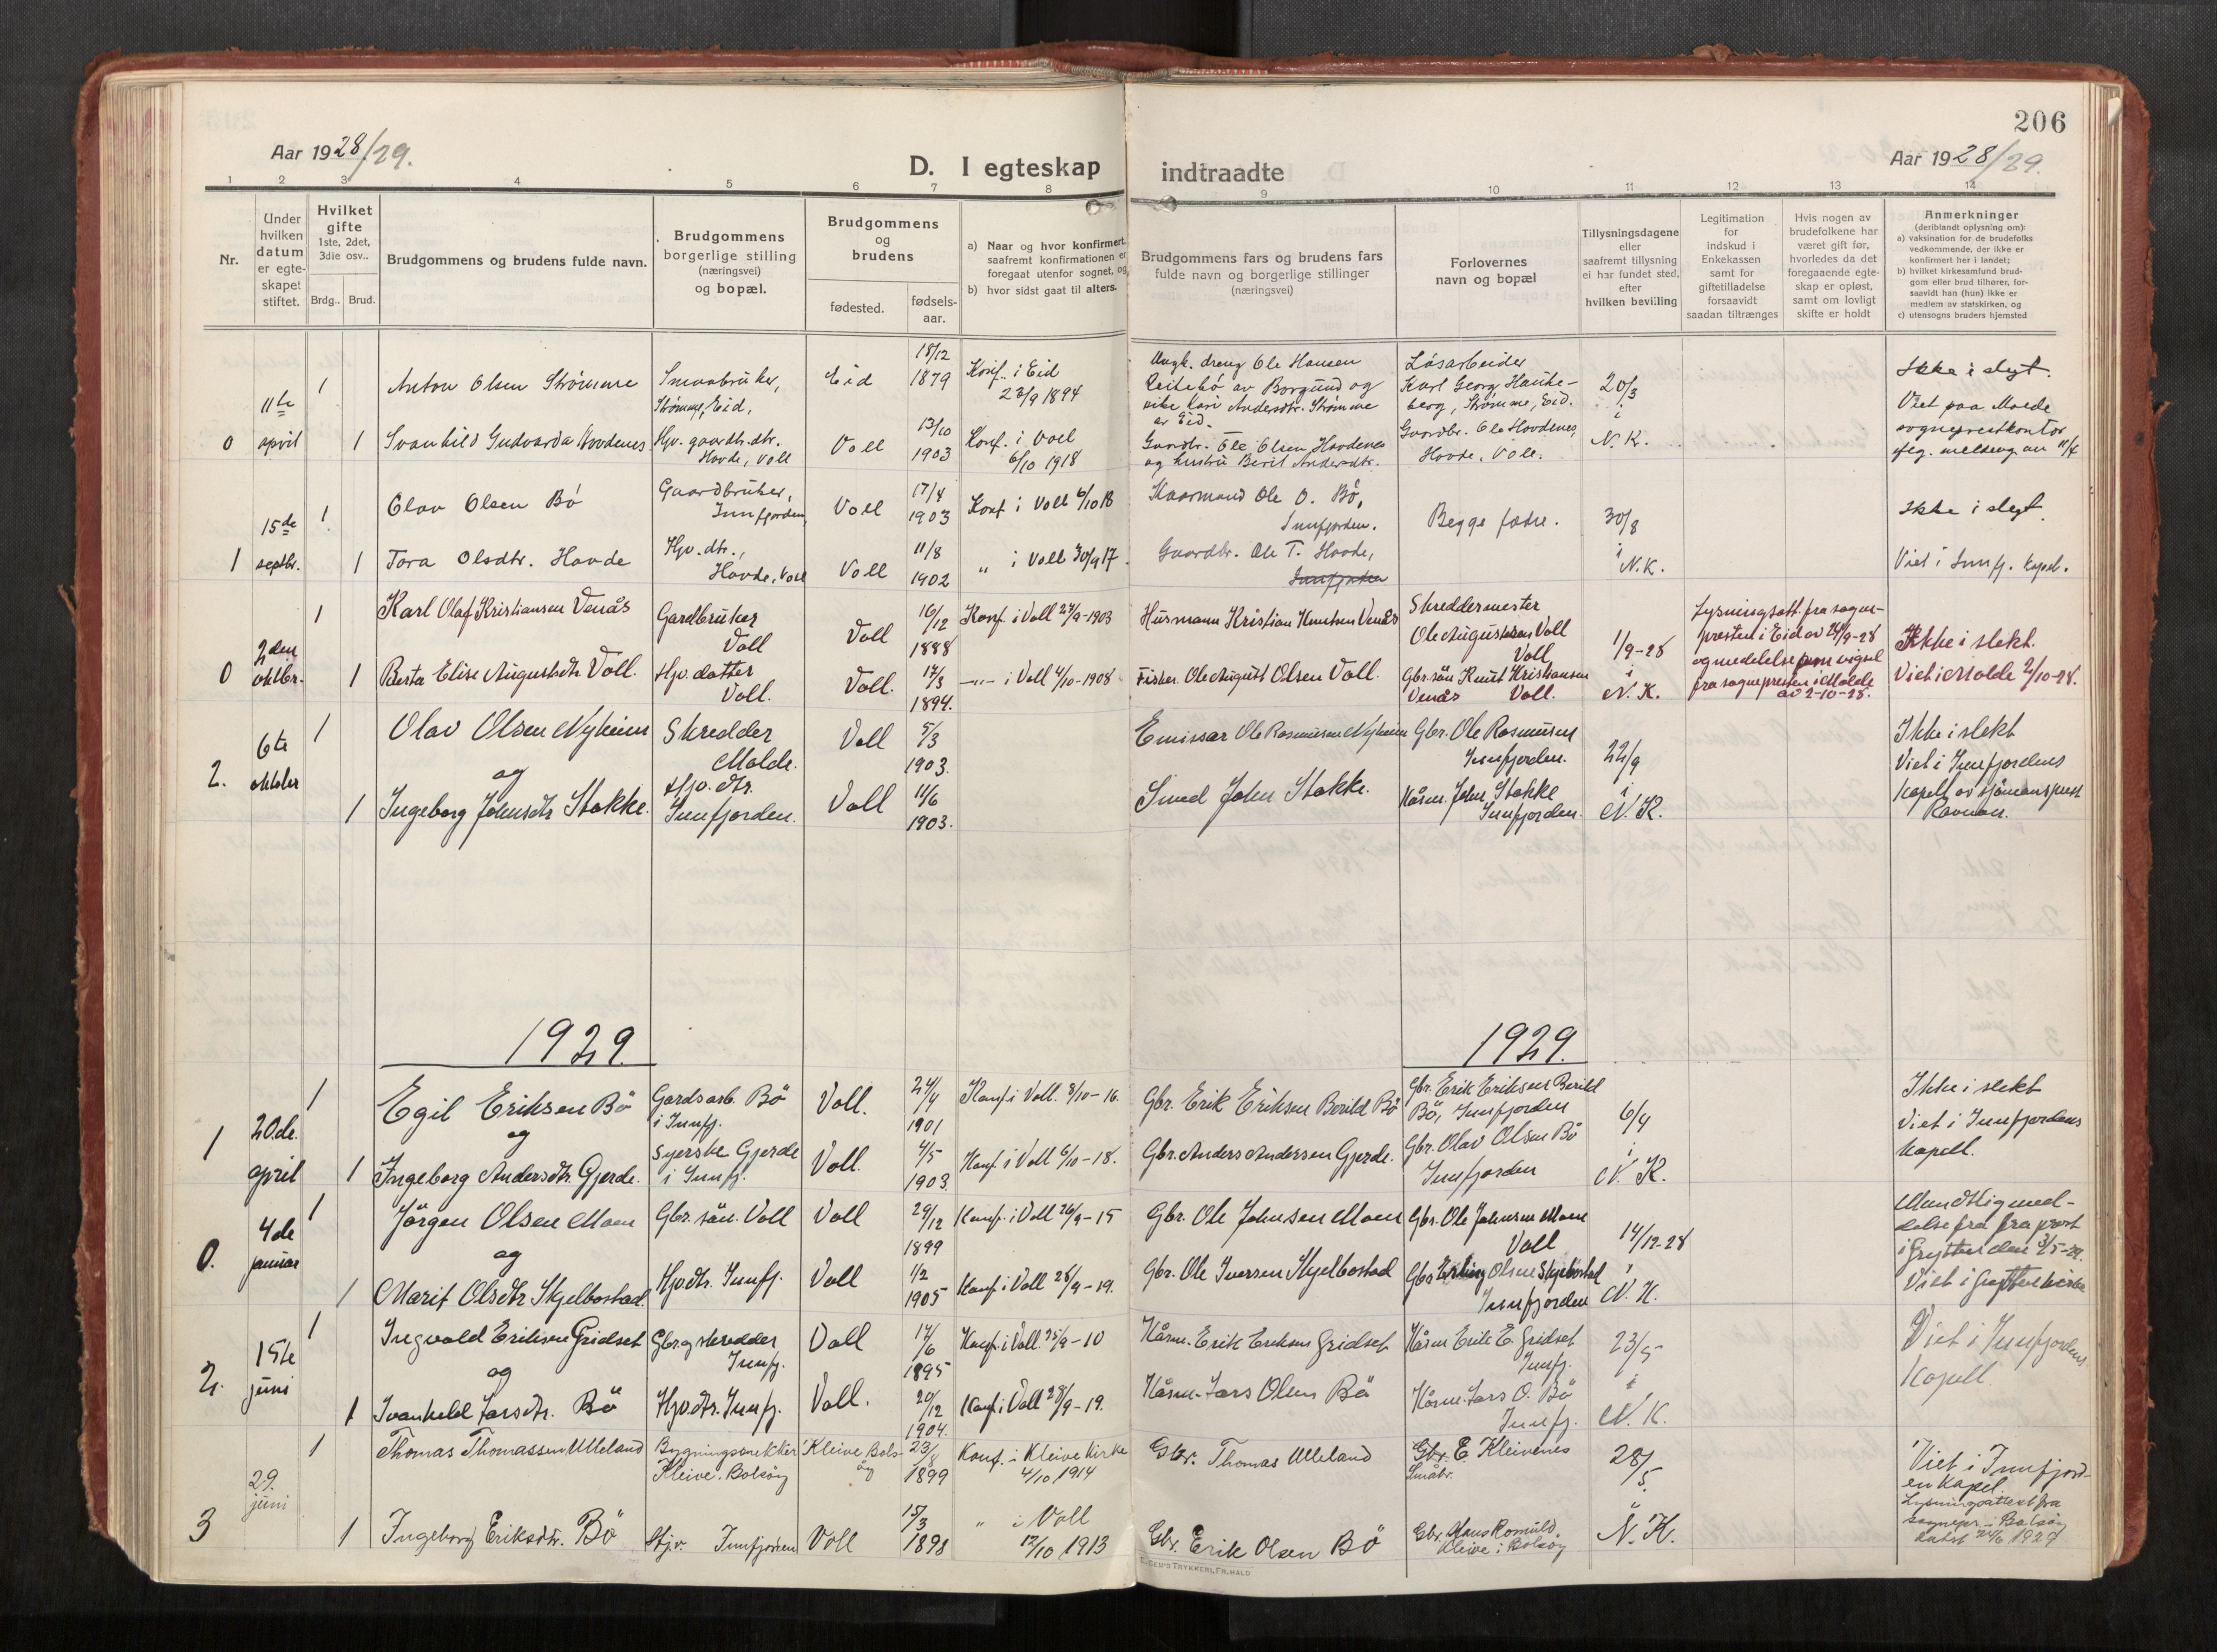 206
Aar 1928/29.
D. I egteskap indtraadte
Aar 1928/29.
1 2 3 4 5 6 7 8 9 10 11 12 13 14
Nr.
Under hvilken datum er egteskapet stiftet.
Hvilket gifte 1ste, 2det, 3die osv..
Brdg.. Brud.
Brudgommens og brudens fulde navn.
Brudgommens borgerlige stilling (næringsvei) og bopæl.
Brudgommens og brudens
fødested. fødselsaar.
a) Naar og hvor konfirmert, saafremt konfirmationen er foregaat utenfor sognet, og
b) hvor sidst gaat til alters.
Brudgommens fars og brudens fars fulde navn og borgerlige stillinger (næringsvei)
Forlovernes navn og bopæl
Tillysningsdagene eller saafremt tillysning ei har fundet sted, efter hvilken bevilling
Legitimation for indskud i Enkekassen samt for giftetilladelse forsaavidt saadan tiltrænges
Hvis nogen av brudefolkene har været gift før, hvorledes da det foregaaende egteskap er opløst, samt om lovligt skifte er holdt
Anmerkninger
(deriblandt oplysning om):
a) vaksination for de brudefolks vedkommende, der ikke er konfirmert her i landet;
b) hvilket kirkesamfund brudgom eller brud tilhører, forsaavidt han (hun) ikke er medlem av statskirken, og
c) utensogns bruders hjemsted
0 11te april
1 Anton Olsen Strømme Smaabruker, Strømme, Eid, Eid 18/12 1879 Konf. i Eid 23/9 1894
Ungk. dreng Ole Hansen Reitebö av Borgund og pike Kari Andersdtr. Strømme av Eid.
Løsarbeider Karl Georg Haukeberg, Strømme, Eid.
20/3 i N. K.
Ikke i slegt.
Viet paa Molde sogneprestkontor
1 Svanhild Gudvarda Hovdenes Hjv. gaardbr.dtr. Hovde, Voll Voll 13/10 1903 Konf. i Voll 6/10 1918
Gaardbr. Ole Olsen Hovdenes og hustru Berit Andersdtr.
Gaardbr. Ole Hovdenes, Hovde, Voll.
flg. melding av 11/4
1 15de septbr.
1 Olav Olsen Bö Gaardbruker, Innfjorden, Voll 17/4 1903 Konf i Voll 6/10 18
Kaarmand Ole O. Bö, Innfjorden.
Begge fædre.
30/8 i N.K.
Ikke i slegt
1 Tora Olsdtr. Hovde Hjv. dtr., Hovde, Voll Voll 11/8 1902 " i Voll 30/9 17.
Gaardbr. Ole T. Hovde, Innfjorden
Viet i Innfj. kapel.
0 2den oktbr.
1 Karl Olaf Kristiansen Venås Gardbruker Voll Voll 16/12 1888 Konf. i Voll 27/9-1903
Husmann Kristian Knutsen Venås
Skreddermester Ole Augustsen Voll Voll
1/9-28 i N. K.
Lysningsatt. fra sognepresten i Eid av 24/9-28 og meddelelse om vigsel fra sognepresten i Molde av 2-10-28.
Ikke i slekt.
Viet i Molde 2/10-28.
1 Berta Elise Augustsdtr Voll. Hjv. datter Voll. Voll. 17/3 1894. -"- i Voll 4/10-1908
Fisker Ole August Olsen Voll.
Gbr. sön Knut Kristiansen Venås Voll.
2. 6te oktober
1 Olav Olsen Nyheim Skredder Molde. Voll 5/3 1903.
Emissær Ole Rasmussen Nyheim
Gbr. Ole Rasmussen Innfjorden.
22/9 i N. K.
Ikke i slekt
Viet i Innfjordens kapell av sjömansprest Ravnan.
og
1 Ingeborg Johnsdtr Stokke. Hjv. dtr. Innfjorden. Voll 11/6 1903.
Smed John Stokke.
Kårm. John Stokke Innfjorden.
1929. 1929.
1 20de. april
1 Egil Eriksen Bö Gardsarb. Bö i Innfj. Voll. 24/4 1901 Konf i Voll. 8/10-16.
Gbr. Erik Eriksen Berild Bö
Gbr. Erik Eriksen Berild Bö, Innfjorden
6/4 i N. K.
Ikke i slekt
Viet i Innfjordens kapell.
og
1 Ingeborg Andersdtr. Gjerde. Syerske Gjerde i Innfj. Voll. 4/5 1903. Konf. i Voll 6/10-18.
Gbr. Anders Andersen Gjerde.
Gbr. Olav Olsen Bö Innfjorden
0. 4de januar
1 Jörgen Olsen Moen Gbr. sön. Voll Voll 29/12 1899 Konf. i Voll 26/9-15
Gbr. Ole Johnsen Moen
Gbr. Ole Johnsen Moen Voll
14/12-28 i N. K.
Mundtlig meddelelse fra fra prost i Grytten den 3/5-29.
Viet i Grytten kirke
og
1 Marit Olsdtr Skjelbostad. Hjv.dtr. Innfj. Voll 1/2 1905 Konf. i Voll 28/9-19.
Gbr. Ole Iversen Skjelbostad
Gbr Erling Olsen Skjelbostad Innfjorden
2. 15te juni
1 Ingvald Eriksen Gridset Gbr. og skredder Innfj. Voll 14/6 1895 Konf. i Voll. 25/9-10
Kårm. Erik Eriksen Gridset
Kårm Erik E. Gridset Innfj.
23/5 i N. K.
Viet i Innfjordens Kapell.
og
1 Svanhild Larsdtr. Bö Hjv.dtr. Innfj. Voll. 20/12 1904. Konf. i Voll 28/9-19.
Kårm. Lars Olsen Bö
Kårm. Lars O. Bö Innfj.
3 29. juni
1 Thomas Thomassen Ulleland Bygningssnekker Kleive. Bolsöy Kleive Bolsöy 23/8 1899 Konf. i Kleive Kirke 4/10 1914
Gbr. Thomas Ulleland
Gbr. E. Kleivenes Småbr.
28/5. i N. K.
Viet i Innfjorden Kapel.
Lysningsattest fra sognepr. i Bolsöy datert 24/6 1929
1 Ingeborg Eriksdtr. Bö Hjv. Innfjorden Voll 15/3 1898 " i Voll 12/10 1913
Gbr. Erik Olsen Bö
Gbr. Hans Romuld. Kleive i Bolsöy
TRYKKERI, FR. HALD